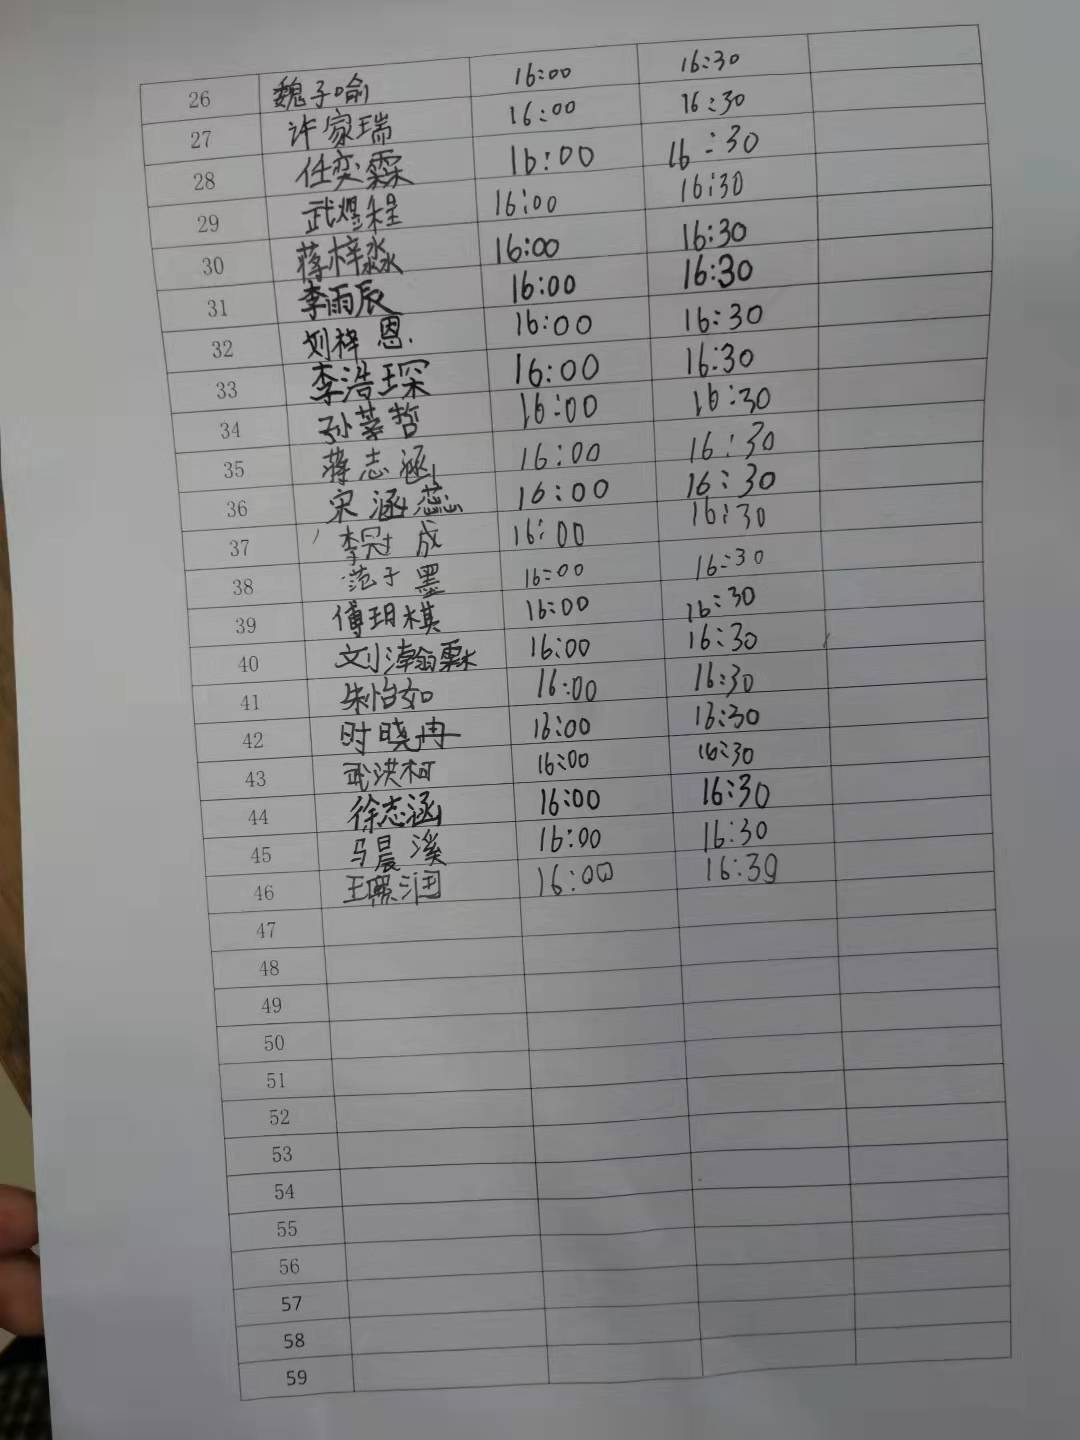 26 魏子喻 16:00 16:30
27 许家瑞 16:00 16:30
28 任奕霖 16:00 16:30
29 武煜程 16:00 16:30
30 蒋梓淼 16:00 16:30
31 李雨辰 16:00 16:30
32 刘梓恩. 16:00 16:30
33 李浩琛 16:00 16:30
34 孙莘哲 16:00 16:30
35 蒋志涵 16:00 16:30
36 宋涵蕊 16:00 16:30
37 李冠成 16:00 16:30
38 范子墨 16:00 16:30
39 傅玥棋 16:00 16:30
40 刘瀚霖 16:00 16:30
41 朱怡如 16:00 16:30
42 时晓冉 16:00 16:30
43 武洪柯 16:00 16:30
44 徐志涵 16:00 16:30
45 马晨溪 16:00 16:30
46 王熙润 16:00 16:30
47
48
49
50
51
52
53
54
55
56
57
58
59